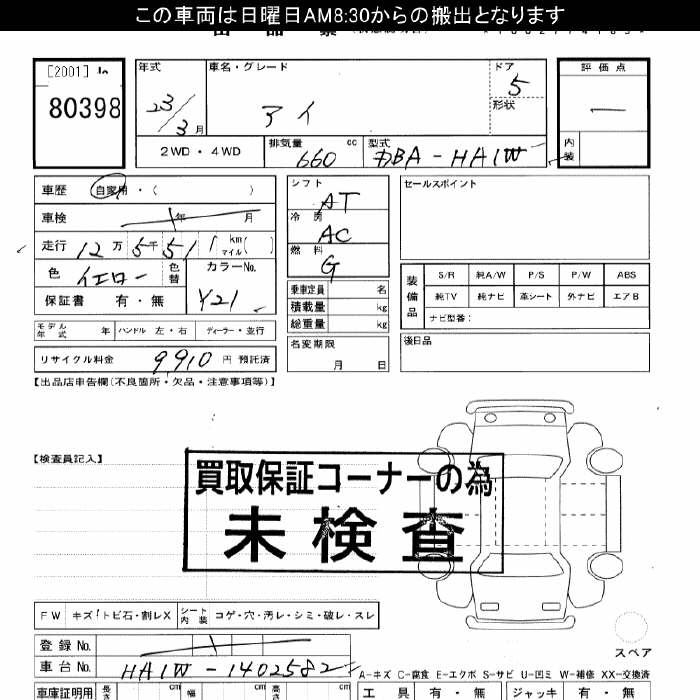 この車両は日曜日AM8:30からの搬出となります
[2001]
80398
年式
車名・グレード
ドア
評価点
23/3月
アイ
5
形状
一
2WD・4WD
排気量
660
cc
型式
DBA-HA1W
内装
車歴
自家用・(　　　)
シフト
AT
セールスポイント
車検
年
月
冷房
AC
走行
12万5千51
km
マイル
(　)
燃料
G
色
イエロー
色替
カラーNo.
Y21
保証書
有・無
乗車定員
名
積載量
kg
総重量
kg
装備品
S/R
純A/W
P/S
P/W
ABS
純TV
純ナビ
革シート
外ナビ
エアB
ナビ型番：
モデル年式
年
ハンドル
左・右
ディーラー・並行
名変期限
月
日
後日品
リサイクル料金
9910
円
預託済
【出品店申告欄(不良箇所・欠品・注意事項等)】
【検査員記入】
買取保証コーナーの為
未検査
FW
キズ!トビ石・割レX
シート内装
コゲ・穴・汚レ・シミ・破レ・スレ
スペア
登録No.
車台No.
HA1W-1402582
A-キズ C-腐食 E-エクボ S-サビ U-凹ミ W-補修 XX-交換済
車庫証明用
長さ
cm
幅
cm
高さ
cm
工具
有・無
ジャッキ
有・無